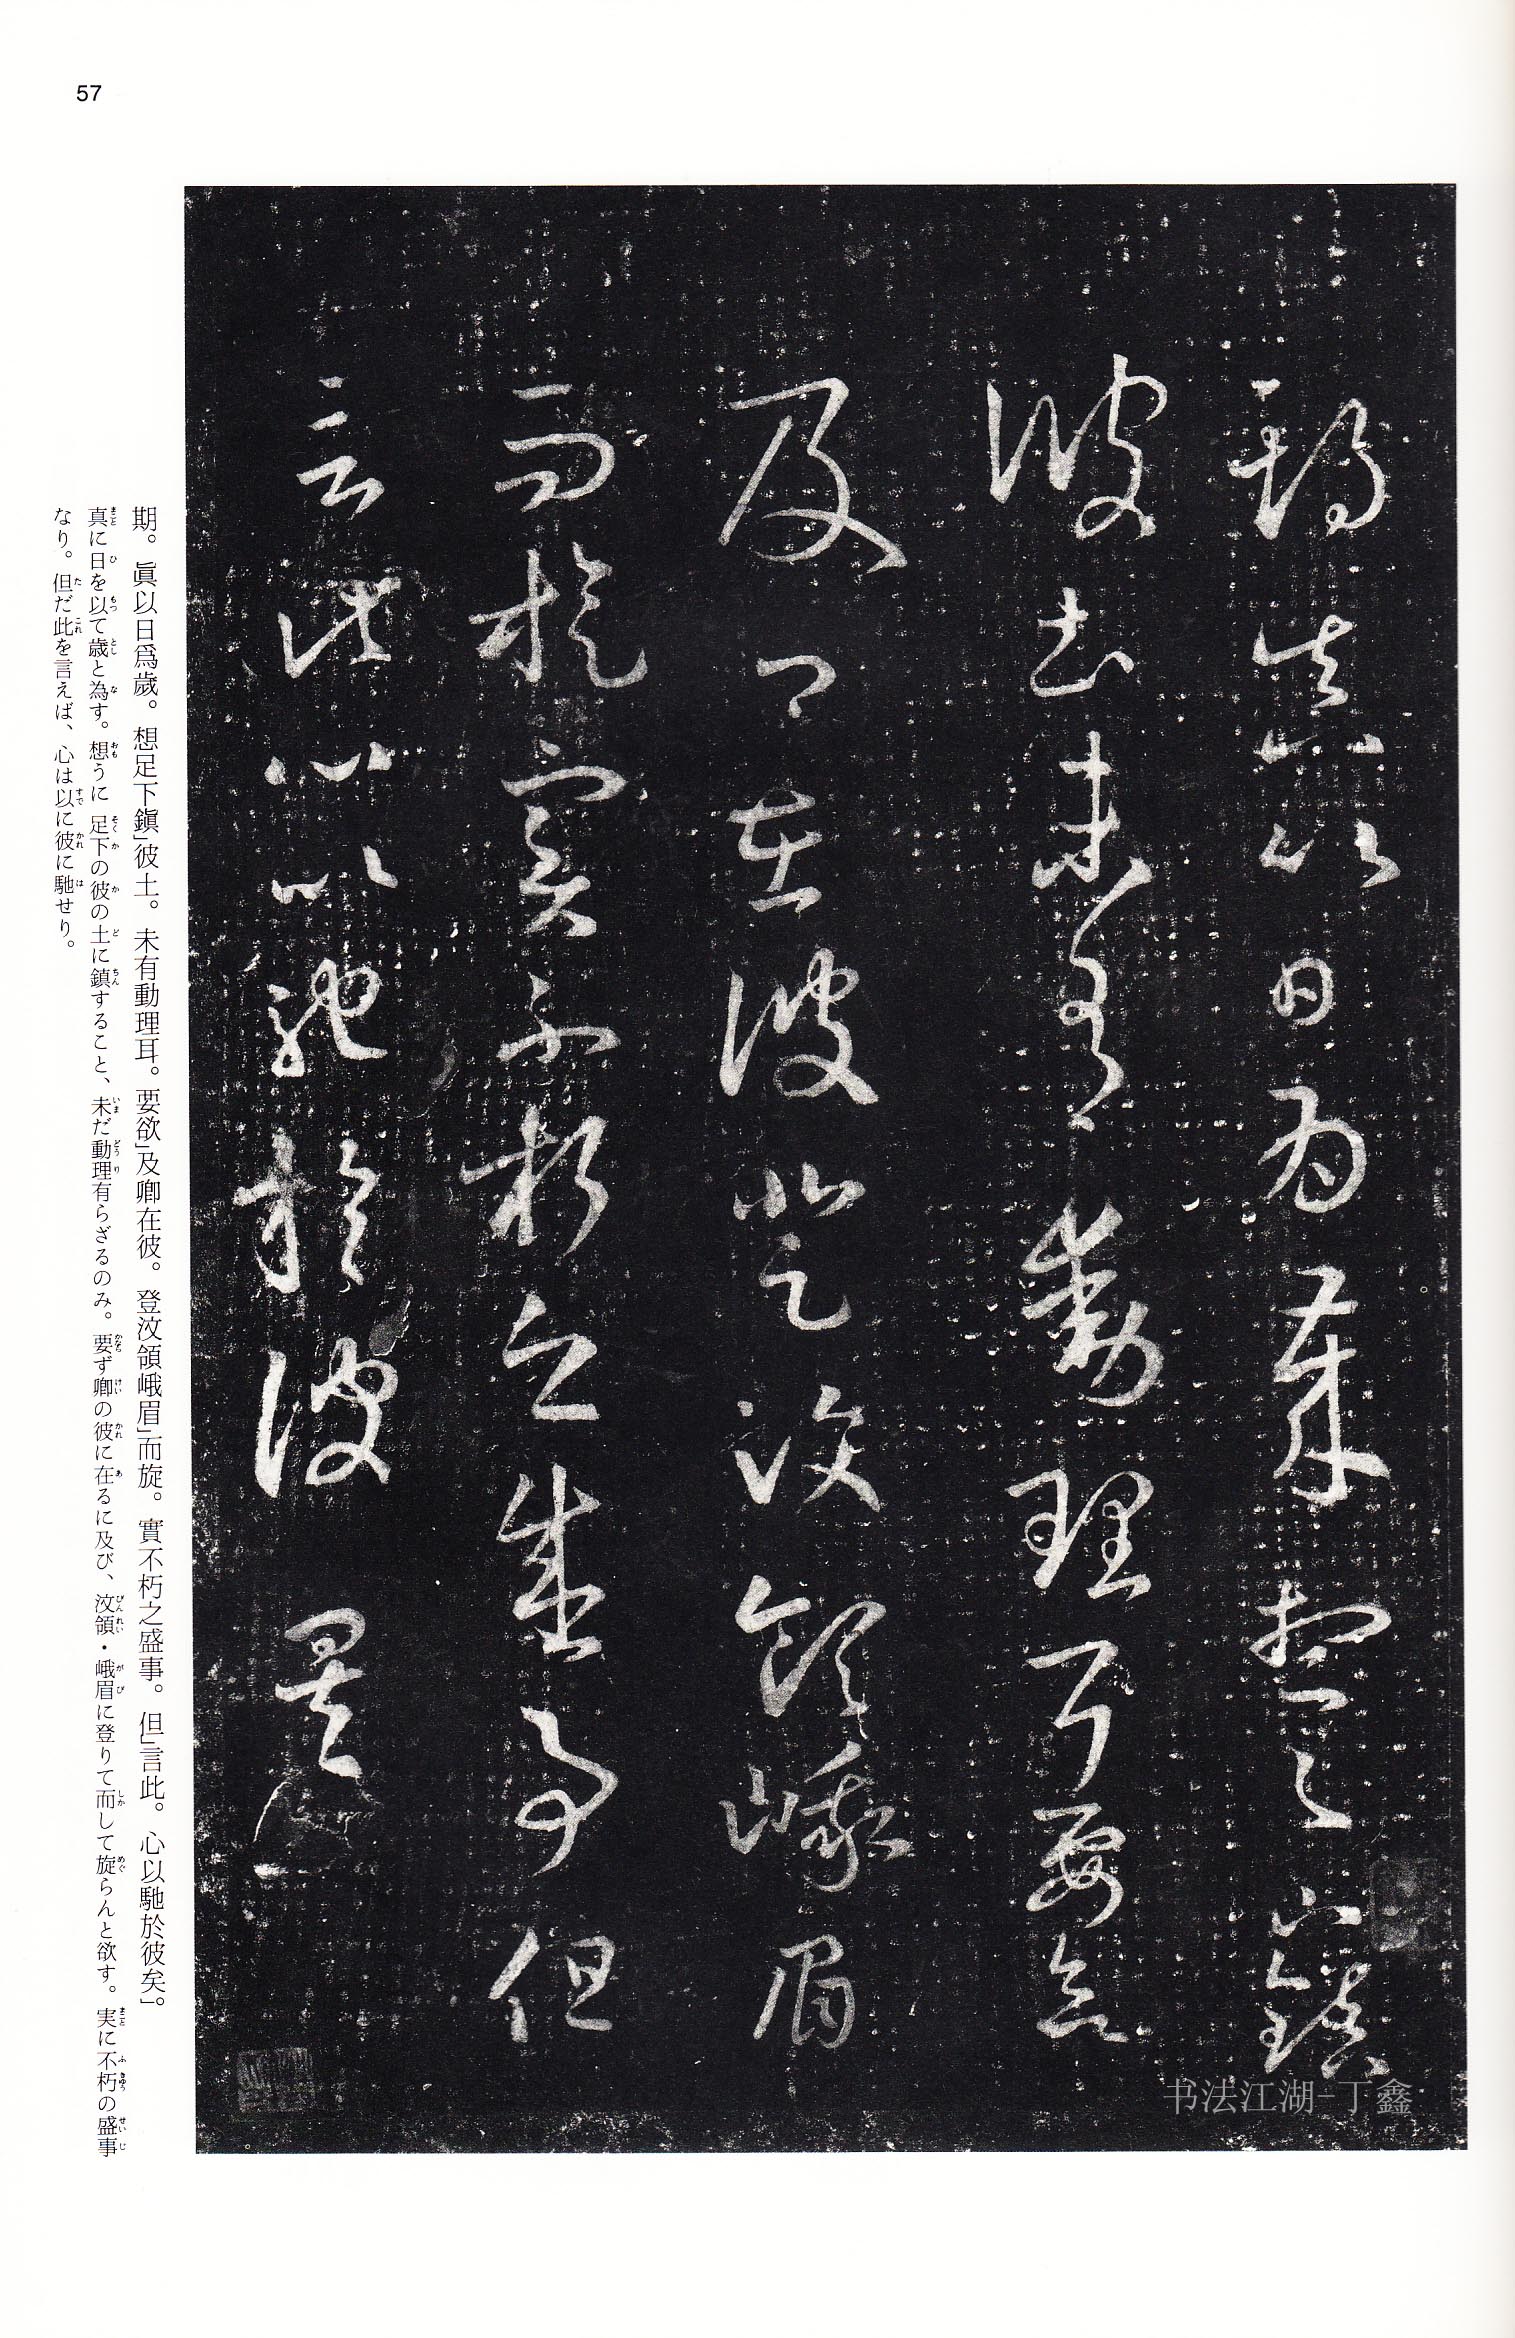 57
期真以日為歲想足下鎮
彼土未有動理耳要欲
及卿在彼登汶領峨眉
而旋實不朽之盛事但
言此心以馳於彼矣
期。眞以日爲歲。想足下鎭」彼土。未有動理耳。要欲」及卿在彼。登汶領峨眉」而旋。實不朽之盛事。但」言此。心以馳於彼矣」。
真に日を以て歳と為す。想うに足下の彼の土に鎮すること、未だ動理有らざるのみ。要ず卿の彼に在るに及び、汶領・峨眉に登りて而して旋らんと欲す。実に不朽の盛事
なり。但だ此を言えば、心は以に彼に馳せり。
书法江湖-丁鑫